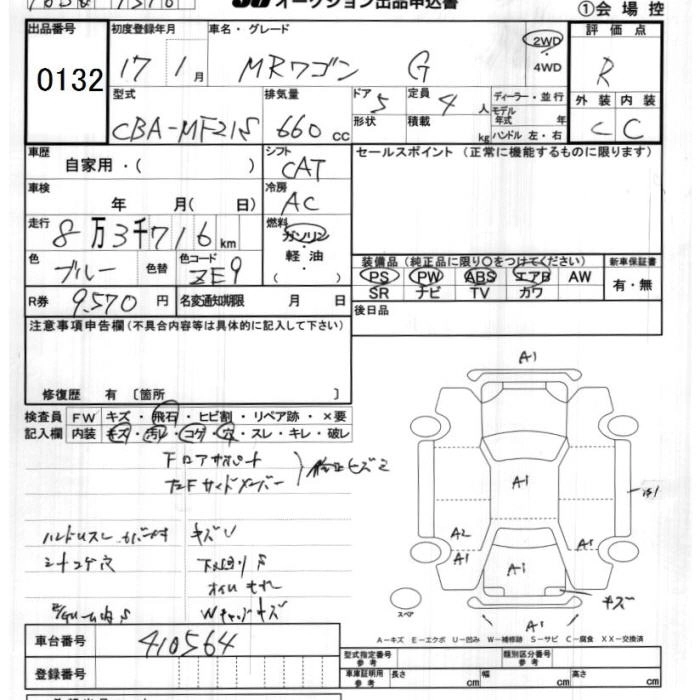 オークション出品申込書
①会場控
出品番号 初度登録年月 車名・グレード 評価点
0132
17年1月 MRワゴン G 2WD R
4WD
外装 内装
C C
型式 排気量 ドア 定員 ディーラー・並行
CBA-MF21S 660cc 5 4人
モデル年式 年
形状 積載 kg ハンドル 左・右
車歴 シフト セールスポイント (正常に機能するものに限ります)
自家用・( ) CAT
車検 冷房
年 月( 日) AC
走行 燃料
8万3千716km ガソリン
軽油
( )
色 色替 色コード
ブルー ZE9
装備品 (純正品に限り○をつけてください) 新車保証書
PS PW ABS エアB AW 有・無
SR ナビ TV カワ
R券 9,570円 名変通知期限 月 日
後日品
注意事項申告欄(不具合内容等は具体的に記入して下さい)
修復歴 有 〔箇所 〕
検査員 FW キズ・飛石・ヒビ割・リペア跡・×要
記入欄 内装 キズ・汚レ・コゲ・穴・スレ・キレ・破レ
Fロアサポート
左Fサイドメンバー
シートコゲ穴
キズU
A1
A1
A2
A1
A1
A1
キズ
A1
スペア
A-キズ E-エクボ U-凹み W-補修跡 S-サビ C-腐食 XX-交換済
車台番号 410564
登録番号
型式指定番号 参考 類別区分番号 参考
車庫証明用 参考 長さ cm 幅 cm 高さ cm